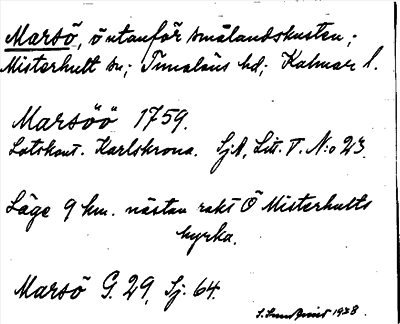 Marsö, ö utanför smålandskusten;
Misterhult sn; Tunaläns hd; Kalmar l.
Marsöö 1759.
Lotskont. Karlskrona. SjA, Litt. T. N:o 23.
Läge 9 km. nästan rakt Ö Misterhults
kyrka.
Marsö G. 29, Sj. 64.
1928.